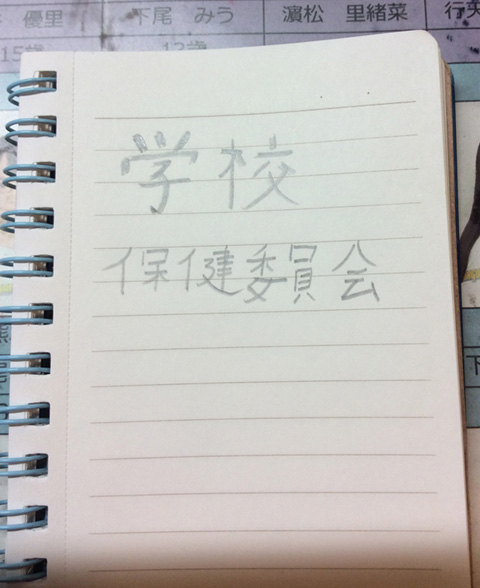 優里 下尾 みう 濵松 里緒菜 行天
15歳 13歳
学校
保健委員会
下